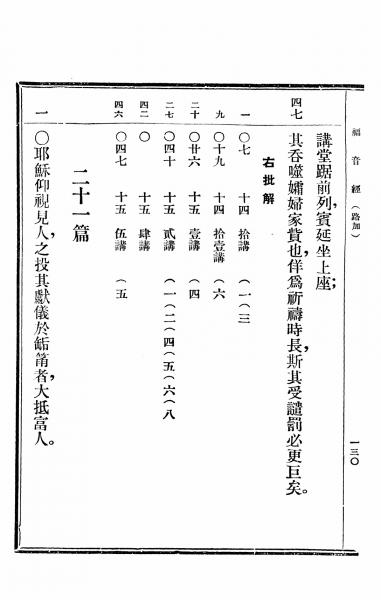 福音經（路加）
一三〇
講堂踞前列，賓延坐上座；
四七 其吞噬孀婦家貲也，佯爲祈禱時長，斯其受譴罰必更巨矣。
右批解
一 〇七 十四 拾講 （一（三
九 〇十九 十四 拾壹講 （六
二十 〇廿六 十五 壹講 （四
二七 〇四十 十五 貳講 （一（二（四（五（六（八
四二 〇 十五 肆講
四六 〇四七 十五 伍講 （五
二十一篇
一 〇耶穌仰視見人之投其獻儀於缿筩者，大抵富人。